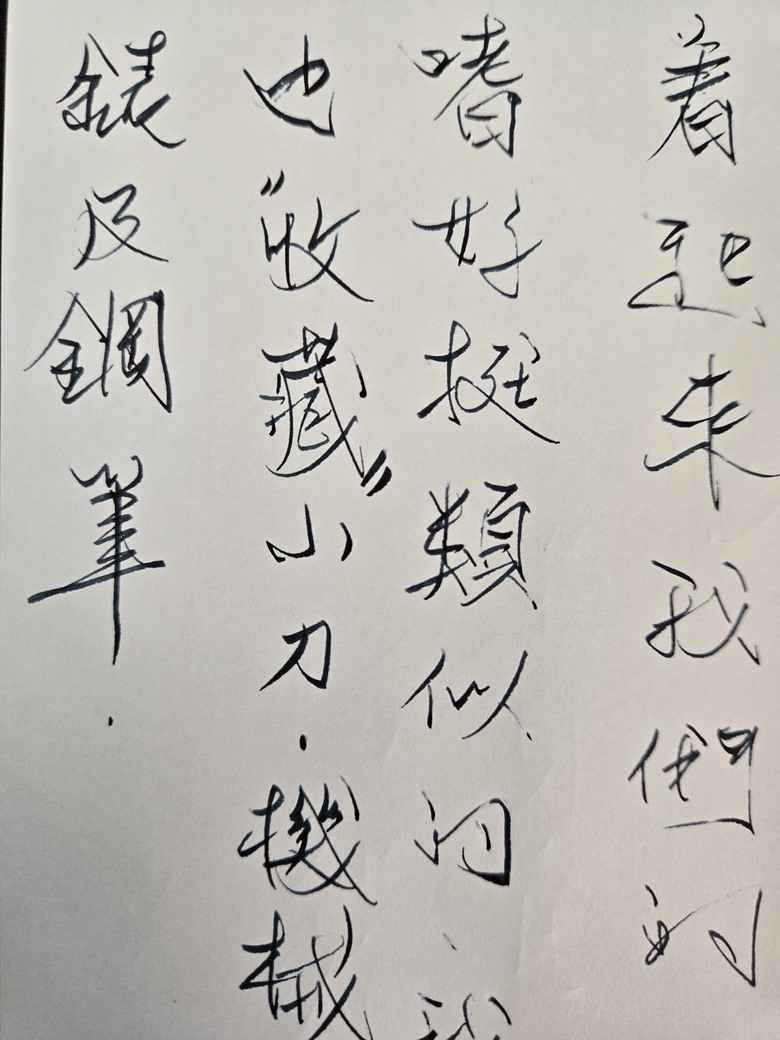 着起来我們的
嗜好挺類似的、我
也“收藏”小刀、機械
錶及鋼筆.